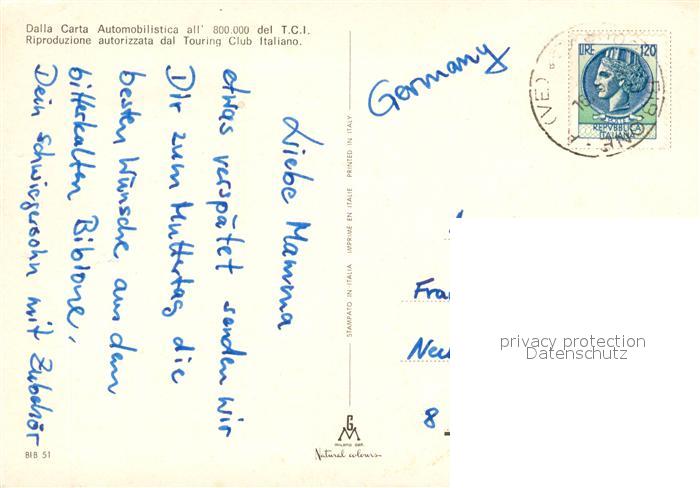 Dalla Carta Automobilistica all' 800.000 del T.C.I.
Riproduzione autorizzata dal Touring Club Italiano.
Liebe Mamma
etwas verspätet senden wir
Dir zum Muttertag die
besten Wünsche aus dem
bitterkalten Bibione,
Dein schwiegersohn mit Zubehör
BIB 51
STAMPATO IN ITALIA IMPRIMÉ EN ITALIE PRINTED IN ITALY
G
M
MILANO
Natural colours
Germany
LIRE 120
REPVBBLICA
ITALIANA
(VE)
Fra
Nec
8
privacy protection
Datenschutz